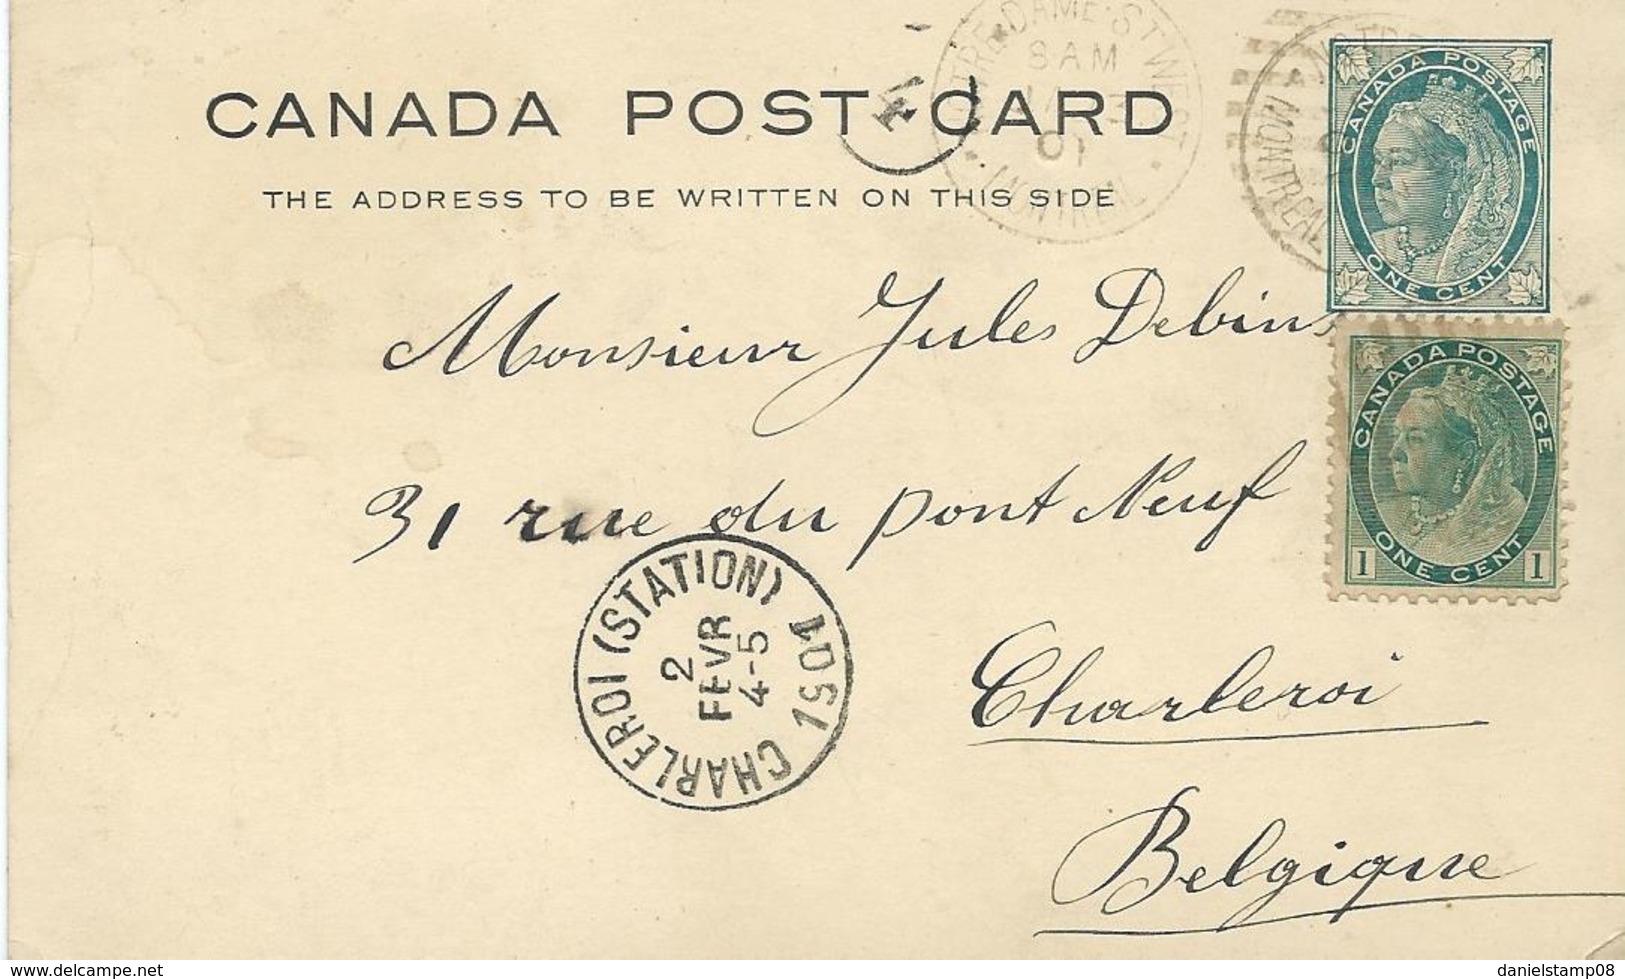 NOTRE·DAME·ST WEST
8 AM
01
MONTREAL
CANADA POST CARD
THE ADDRESS TO BE WRITTEN ON THIS SIDE
4
MONTREAL
CANADA POSTAGE
ONE CENT
Monsieur Jules Debins
31 rue du pont Neuf
CANADA POSTAGE
1 ONE CENT 1
CHARLEROI (STATION) 1901
2
FEVR
4-5
Charleroi
Belgique
www.delcampe.net
danielstamp08